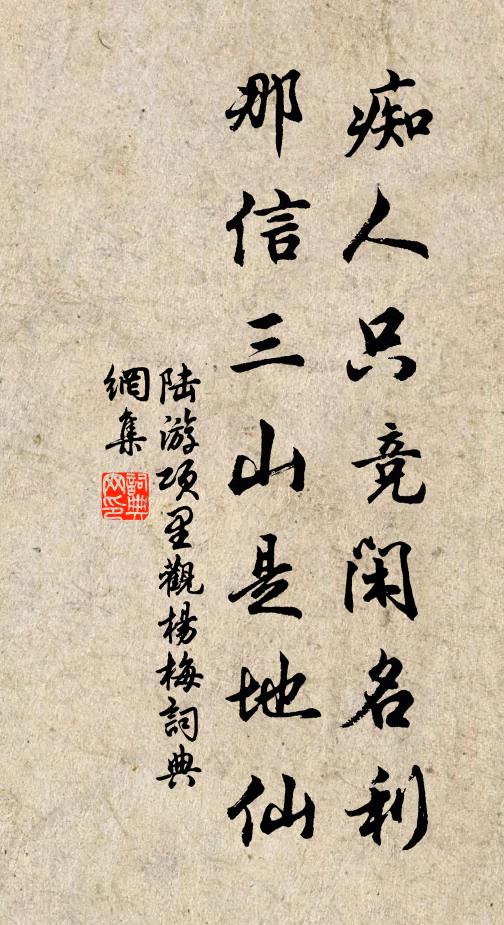 痴人只竞闲名利
那信三山是地仙
陆游项里觀楊梅詞典
網集
詞典
网印